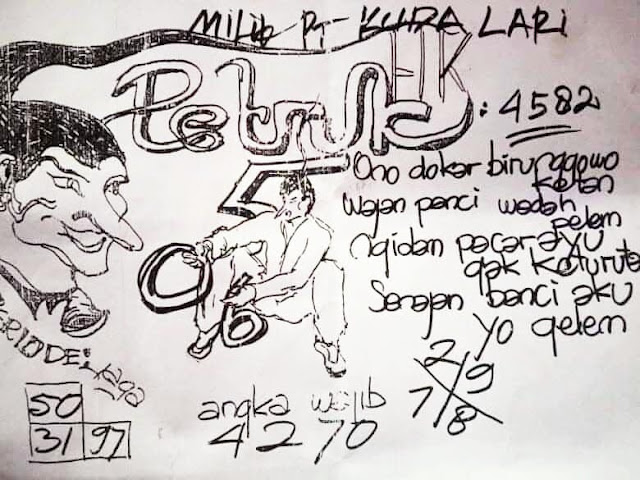 Milib Pi KUDA LARI
Petruk HK : 4582
5
Ono dokar biru nggowo
ketan
wajan panci wadah
pelem
ngidam pacar ayu
gak keturutan
Senajan banci aku
yo gelem
0 6
PERIODE:
50
31 97
angka wajib
4270
2 9
7 8